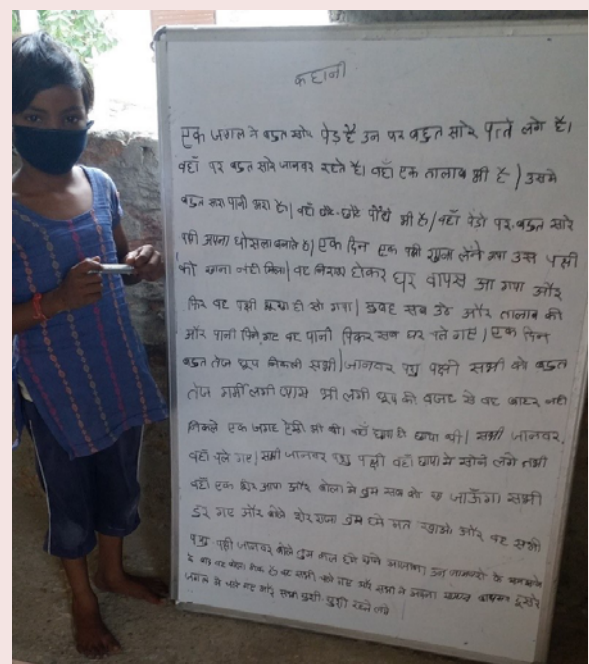 कहानी
एक जगल मे बहुत सारे पेड़ है उन पर बहुत सारे पत्ते लगे है।
वहाँ पर बहुत सारे जानवर रहते है। वहाँ एक तालाब भी है / उसमे
बहुत सारा पानी भरा है। वहाँ छोटे-छोटे पौधे भी है। वहाँ पेडो पर बहुत सारे
पक्षी अपना घोसला बनाते है। एक दिन एक पक्षी खाना लेने गया उस पक्षी
को खाना नही मिला। वह निराश होकर घर वापस आ गया और
फिर वह पक्षी भूखा ही सो गया। सुबह सब उठे और तालाब की
और पानी पिने गए वह पानी पिकर सब घर चले गए। एक दिन
बहुत तेज धूप निकली सभी जानवर पशु पक्षी सभी को बहुत
तेज गर्मी लगी प्यास भी लगी धूप की वजह से वह बाहर नही
निकले एक जगह ऐसी भी थी। वहाँ छाया ही छाया थी। सभी जानवर
वहाँ चले गए। सभी जानवर पशु पक्षी वहाँ छाया मे सोने लगे तभी
वहाँ एक शेर आया और बोला मे तुम सब को खा जाऊँगा। सभी
डर गए और बोले शेर राजा तुम हमे मत खाओ और वह सभी
पशु पक्षी जानवर बोले तुम कल हमे खाने आजाना।
वह बोला ठीक है वह सभी चले गए और सभी ने अपना
जगल मे चले गए और सभी खुशी-खुशी रहने लगे